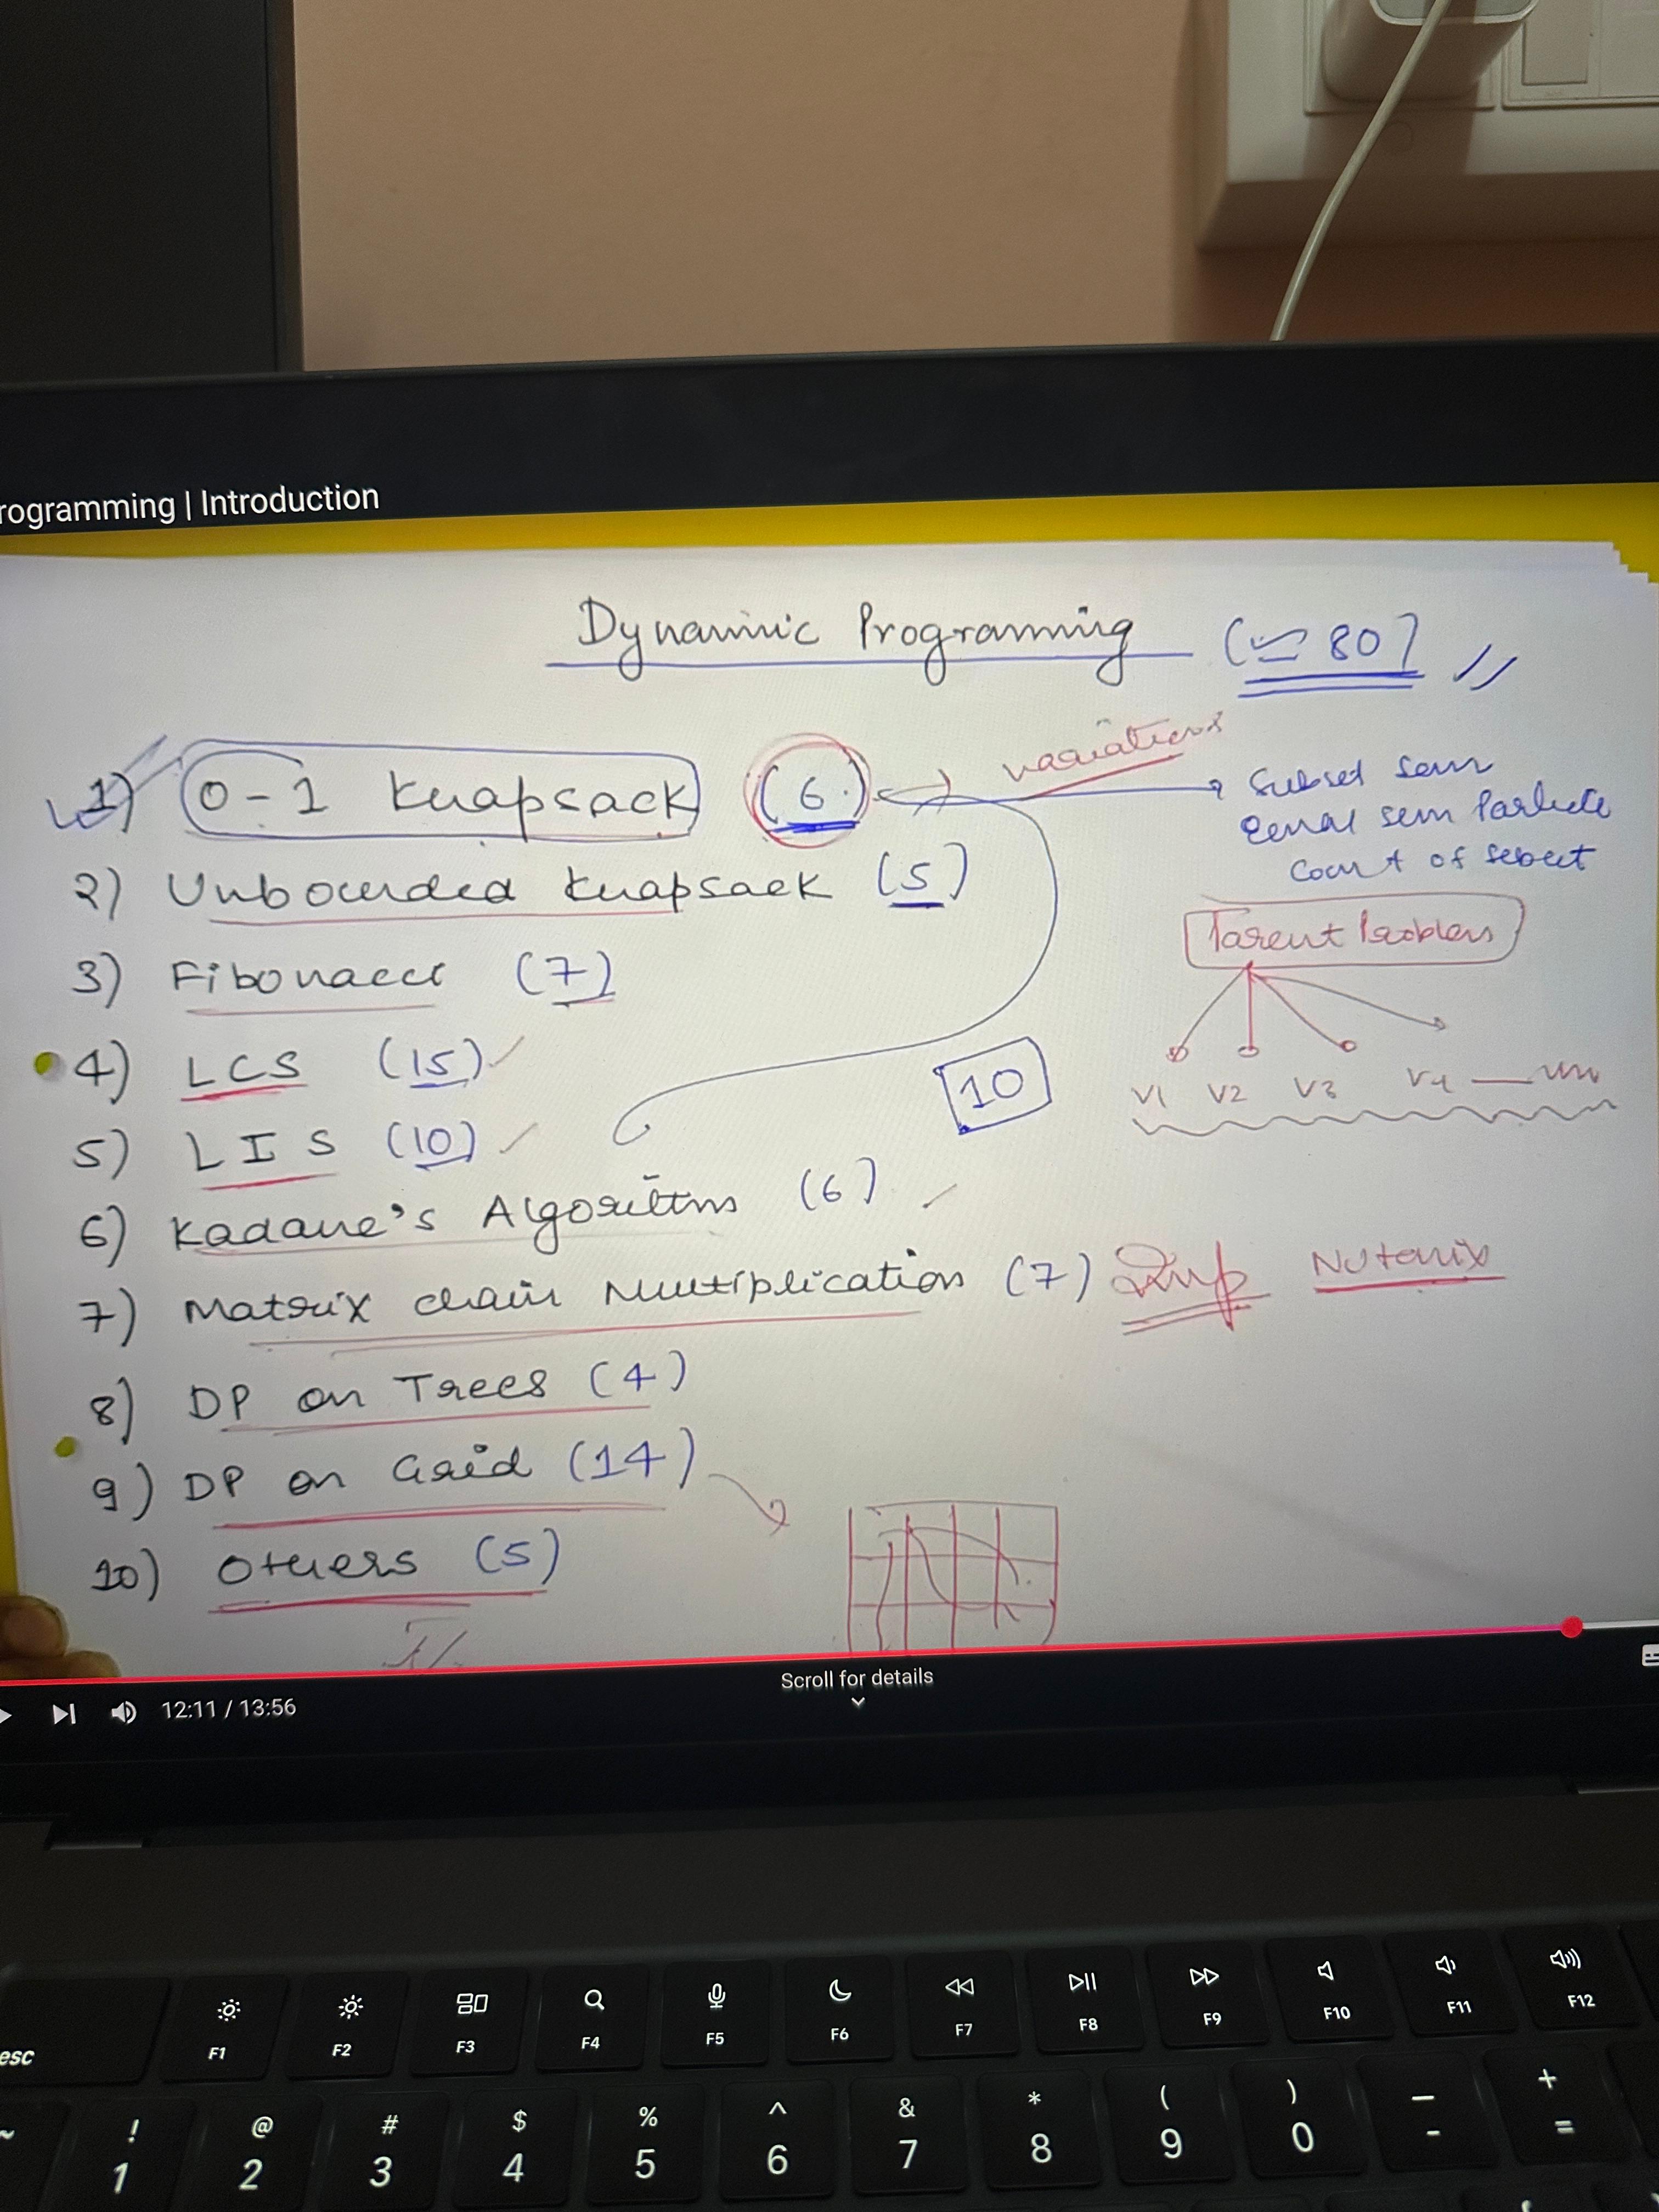 rogramming | Introduction
Dynamic Programming (≃ 80)
1) 0-1 Knapsack (6) variations
Subset sum
Equal sum Partition
Count of subset
2) Unbounded Knapsack (5)
Parent Problem
3) Fibonacci (7)
4) LCS (15)
10
V1 V2 V3 V4
5) LIS (10)
6) Kadane's Algorithm (6)
7) Matrix chain Multiplication (7) Imp Nutanix
8) DP on Trees (4)
9) DP on Grid (14)
10) Others (5)
Scroll for details
12:11 / 13:56
esc F1 F2 F3 F4 F5 F6 F7 F8 F9 F10 F11 F12
~ ! @ # $ % ^ & * ( ) — +
1 2 3 4 5 6 7 8 9 0 - =